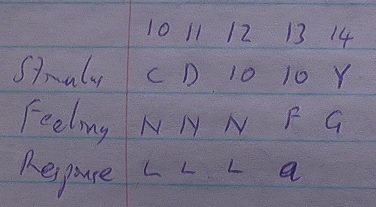 10 11 12 13 14
Stimulus C D 10 10 Y
Feeling N N N F G
Response L L L a